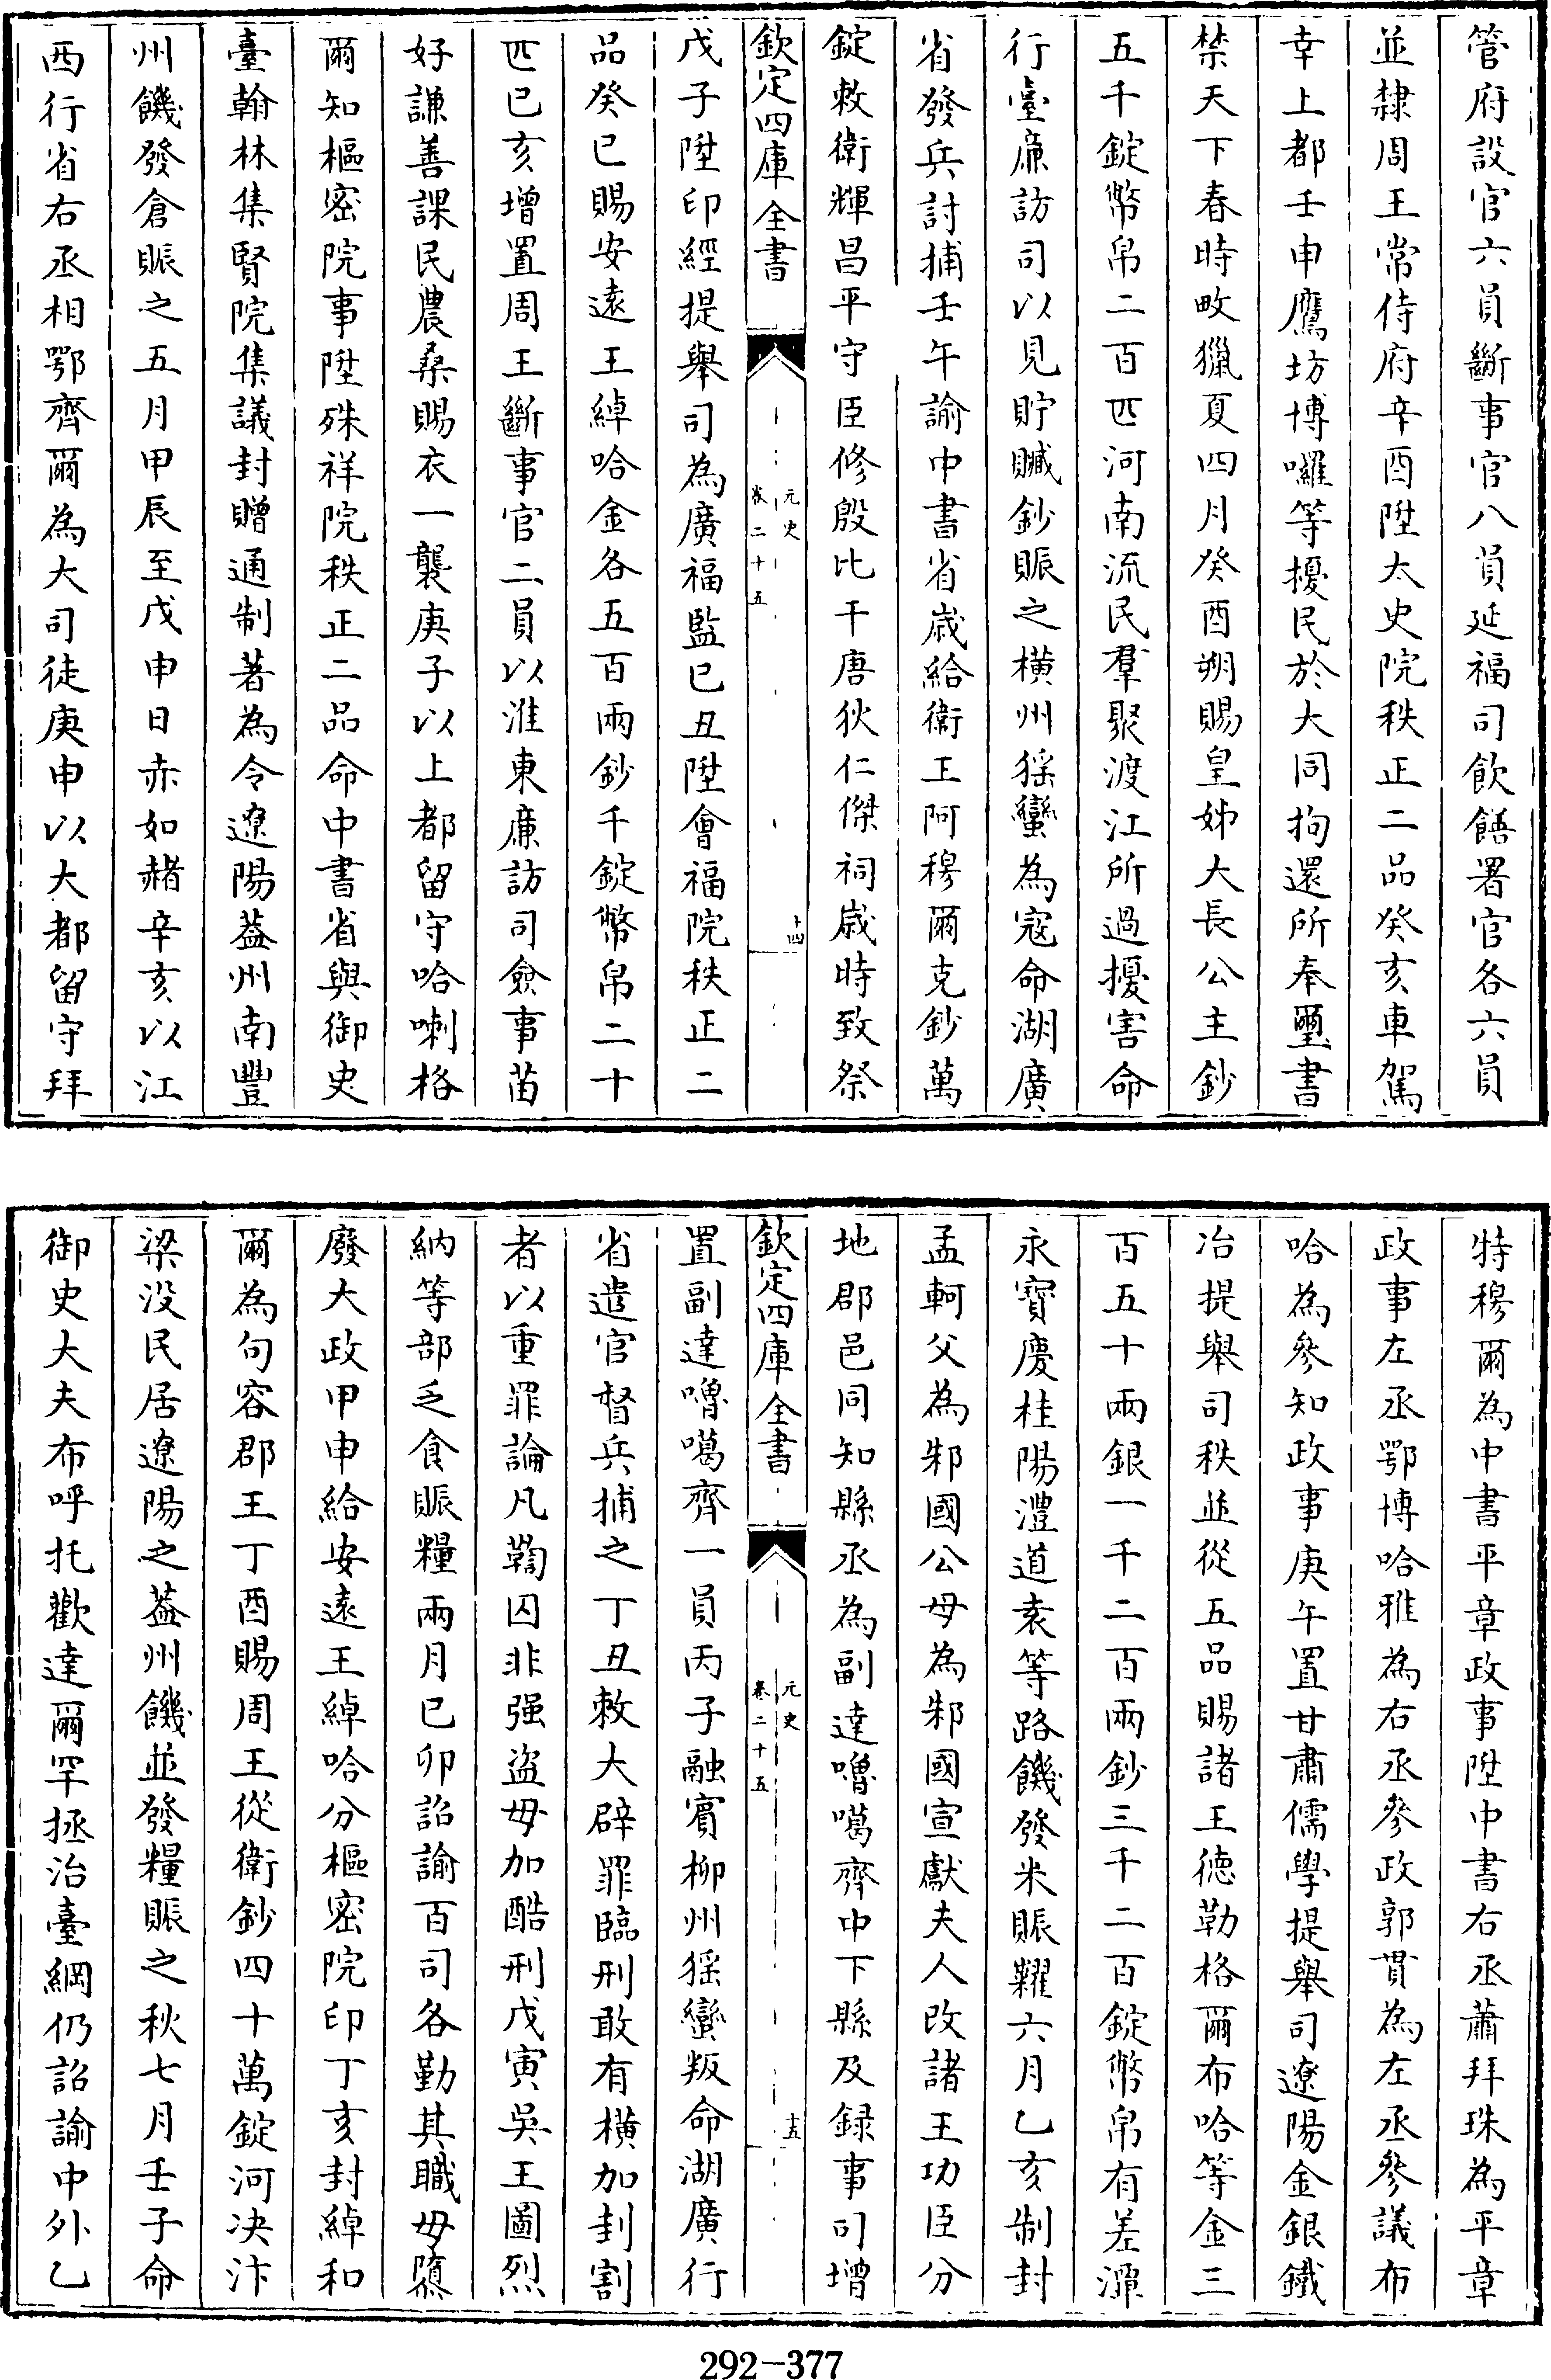 管府設官六員斷事官八員延福司飲饍署官各六員
並隸周王常侍府辛酉陞太史院秩正二品癸亥車駕
幸上都壬申鷹坊博囉等擾民於大同拘還所奉璽書
禁天下春時畋獵夏四月癸酉朔賜皇姊大長公主鈔
五千錠幣帛二百匹河南流民羣聚渡江所過擾害命
行臺廉訪司以見貯贓鈔賑之橫州猺蠻為寇命湖廣
省發兵討捕壬午諭中書省歲給衛王阿穆爾克鈔萬
錠敕衛輝昌平守臣修殷比干唐狄仁傑祠歲時致祭
欽定四庫全書
元史
卷二十五
十四
戊子陞印經提舉司為廣福監己丑陞會福院秩正二
品癸巳賜安遠王綽哈金各五百兩鈔千錠幣帛二十
匹已亥增置周王斷事官二員以淮東廉訪司僉事苗
好謙善課民農桑賜衣一襲庚子以上都留守哈喇格
爾知樞密院事陞殊祥院秩正二品命中書省與御史
臺翰林集賢院集議封贈通制著為令遼陽葢州南豐
州饑發倉賑之五月甲辰至戊申日赤如赭辛亥以江
西行省右丞相鄂齊爾為大司徒庚申以大都留守拜
特穆爾為中書平章政事陞中書右丞蕭拜珠為平章
政事左丞鄂博哈雅為右丞參政郭貫為左丞參議布
哈為參知政事庚午置甘肅儒學提舉司遼陽金銀鐵
冶提舉司秩並從五品賜諸王德勒格爾布哈等金三
百五十兩銀一千二百兩鈔三千二百錠幣帛有差潭
永寶慶桂陽澧道袁等路饑發米賑糶六月乙亥制封
孟軻父為邾國公母為邾國宣獻夫人改諸王功臣分
地郡邑同知縣丞為副達嚕噶齊中下縣及録事司增
欽定四庫全書
元史
卷二十五
十五
置副達嚕噶齊一員丙子融賓柳州猺蠻叛命湖廣行
省遣官督兵捕之丁丑敕大辟罪臨刑敢有橫加刲割
者以重罪論凡鞫囚非强盗毋加酷刑戊寅吳王圖烈
納等部乏食賑糧兩月已卯詔諭百司各勤其職毋隳
廢大政甲申給安遠王綽哈分樞密院印丁亥封綽和
爾為句容郡王丁酉賜周王從衛鈔四十萬錠河决汴
梁没民居遼陽之葢州饑並發糧賑之秋七月壬子命
御史大夫布呼托歡達爾罕拯治臺綱仍詔諭中外乙
292-377